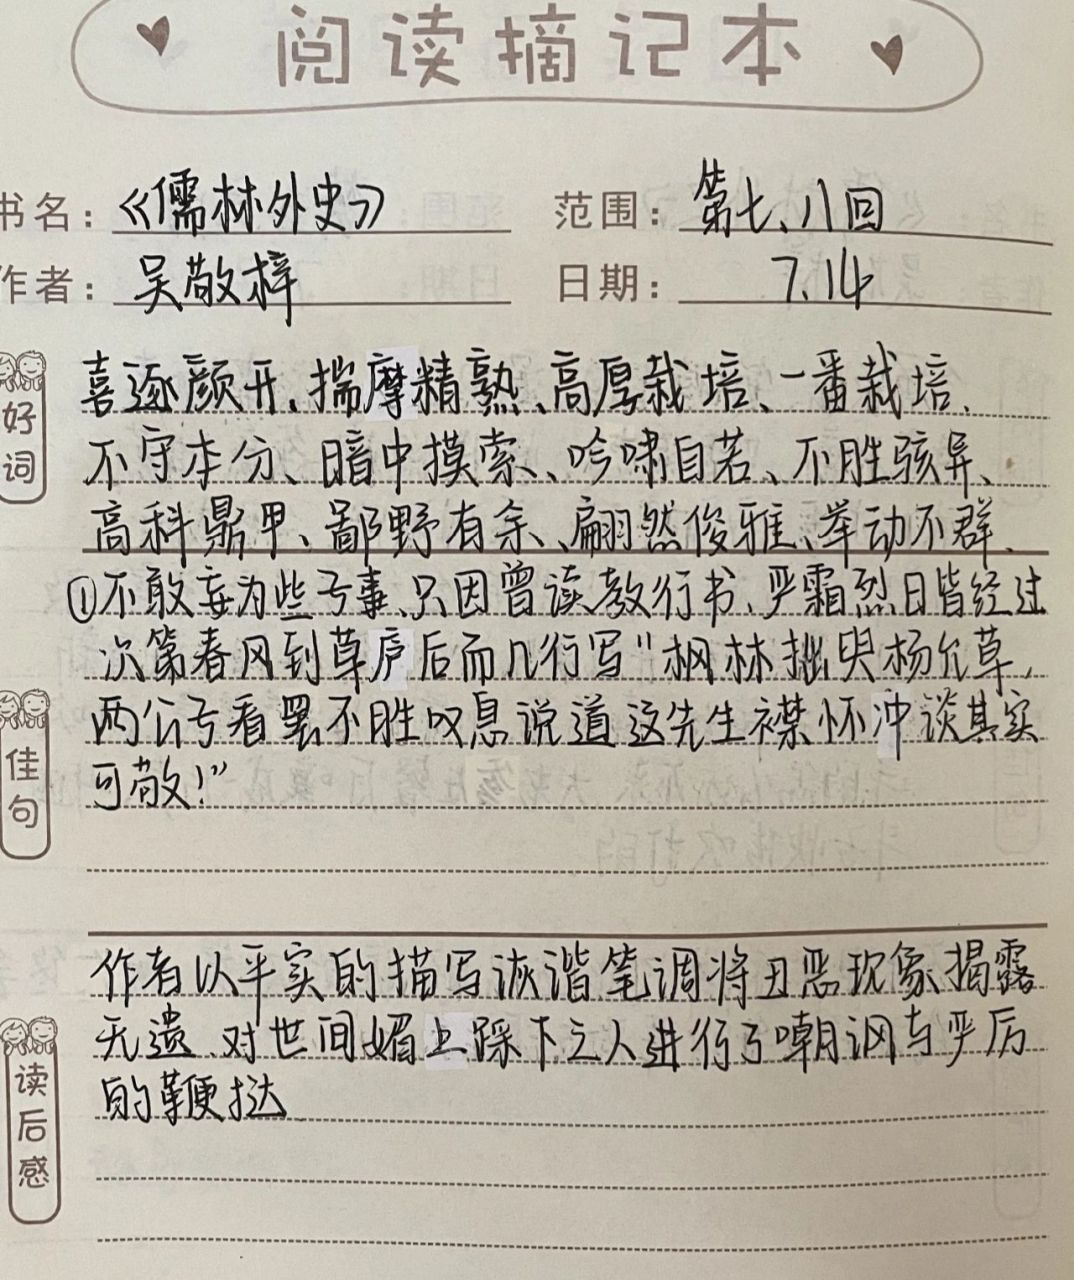 阅读摘记本
书名：《儒林外史》 范围：第七、八回
作者：吴敬梓 日期：7.14
好词
喜逐颜开、揣摩精熟、高厚栽培、一番栽培、
不守本分、暗中摸索、吟啸自若、不胜骇异、
高科鼎甲、鄙野有余、翩然俊雅、举动不群、
佳句
①不敢妄为些子事、只因曾读数行书、严霜烈日皆经过
次第春风到草庐后而几行写"枫林拙叟杨允草,
两公子看罢不胜叹息说道这先生襟怀冲谈其实
可敬!"
读后感
作者以平实的描写诙谐笔调将丑恶现象揭露
无遗、对世间媚上踩下之人进行了嘲讽与严厉
的鞭挞